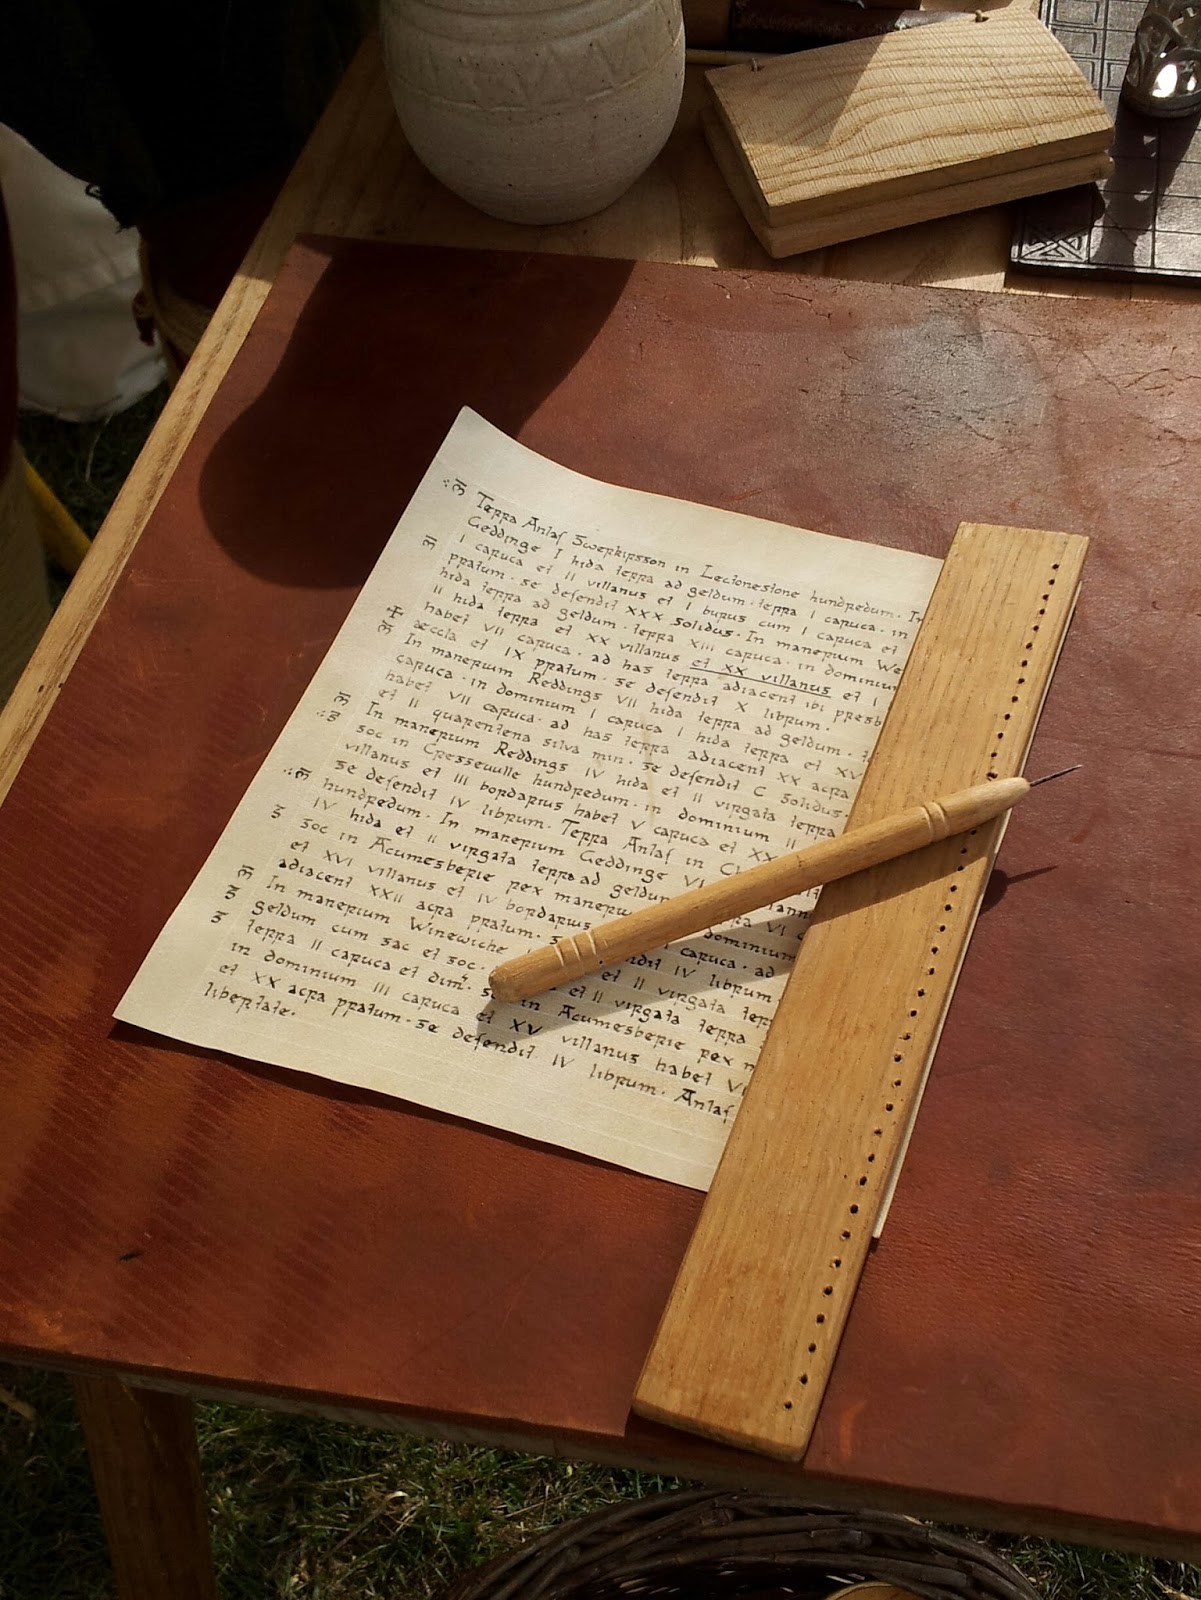 Terra Anlaf Swerkirsson in Lectonestone hundredum. In
Geddinge I hida terra ad geldum. terra I caruca. in
I caruca et II villanus et I burus cum I caruca et
pratum. se defendit XXX solidus. In manerium We
hida terra ad geldum. terra XIII caruca. in dominium
II hida terra et XX villanus et XX villanus et I
habet VII caruca. ad has terra adiacent ibi presb
aeccla et IX pratum. se defendit X librum.
In manerium Reddings VII hida terra ad geldum.
caruca. in dominium I caruca I hida terra et XV
habet VII caruca. ad has terra adiacent XX acra
et II quarentena silva min. se defendit C solidus.
In manerium Reddings IV hida et II virgata terra
soc in Cresseuulle hundredum. in dominium II
villanus et III bordarius habet V caruca et XX
se defendit IV librum. Terra Anlaf in
hundredum. In manerium Geddinge VI
IV hida et II virgata terra ad geldum terra VI
soc in Acumesberie rex dominium
et XVI villanus et IV bordarius caruca. ad
adiacent XXII acra pratum. IV librum.
In manerium Winewiche
geldum cum sac et soc. et II virgata terra
terra II caruca et dim. in Acumesberie rex
in dominium III caruca et XV villanus habet VI
et XX acra pratum. se defendit IV librum. Anlaf
libertate.